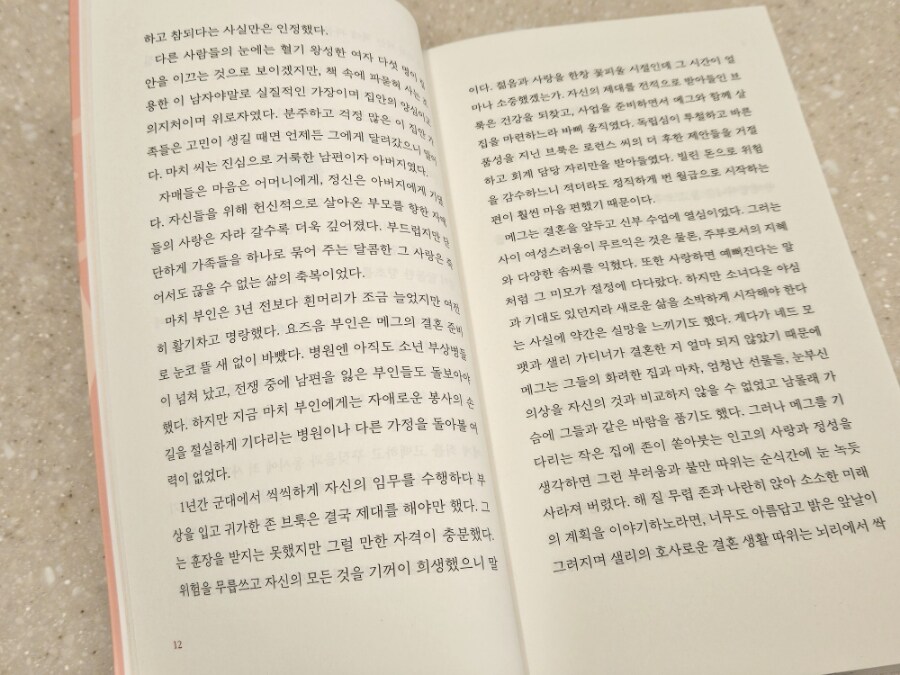 하고 참되다는 사실만은 인정했다.
다른 사람들의 눈에는 혈기 왕성한 여자 다섯 명이 집
안을 이끄는 것으로 보이겠지만, 책 속에 파묻혀 사는 조
용한 이 남자야말로 실질적인 가장이며 집안의 양심이고
의지처이며 위로자였다. 분주하고 걱정 많은 이 집안 가
족들은 고민이 생길 때면 언제든 그에게 달려갔으니 말이
다. 마치 씨는 진심으로 거룩한 남편이자 아버지였다.
자매들은 마음은 어머니에게, 정신은 아버지에게
다. 자신들을 위해 헌신적으로 살아온 부모를 향한 자매
들의 사랑은 자라 갈수록 더욱 깊어졌다. 부드럽지만 단
단하게 가족들을 하나로 묶어 주는 달콤한 그 사랑은 죽
어서도 끊을 수 없는 삶의 축복이었다.
마치 부인은 3년 전보다 흰머리가 조금 늘었지만 여전
히 활기차고 명랑했다. 요즈음 부인은 메그의 결혼 준비
로 눈코 뜰 새 없이 바빴다. 병원엔 아직도 소년 부상병들
이 넘쳐 났고, 전쟁 중에 남편을 잃은 부인들도 돌보아야
했다. 하지만 지금 마치 부인에게는 자애로운 봉사의 손
길을 절실하게 기다리는 병원이나 다른 가정을 돌아볼 여
력이 없었다.
1년간 군대에서 씩씩하게 자신의 임무를 수행하다 부
상을 입고 귀가한 존 브룩은 결국 제대를 해야만 했다. 그
는 훈장을 받지는 못했지만 그럴 만한 자격이 충분했다.
위험을 무릅쓰고 자신의 모든 것을 기꺼이 희생했으니 말
12
이다. 젊음과 사랑을 한창 꽃피울 시절인데 그 시간이 얼
마나 소중했겠는가. 자신의 제대를 전적으로 받아들인 브
룩은 건강을 되찾고, 사업을 준비하면서 메그와 함께 살
집을 마련하느라 바삐 움직였다. 독립심이 투철하고 바른
품성을 지닌 브룩은 로런스 씨의 더 후한 제안들을 거절
하고 회계 담당 자리만을 받아들였다. 빌린 돈으로 위험
을 감수하느니 적더라도 정직하게 번 월급으로 시작하는
편이 훨씬 마음 편했기 때문이다.
메그는 결혼을 앞두고 신부 수업에 열심이었다. 그러는
사이 여성스러움이 무르익은 것은 물론, 주부로서의 지혜
와 다양한 솜씨를 익혔다. 또한 사랑하면 예뻐진다는 말
처럼 그 미모가 절정에 다다랐다. 하지만 소녀다운 야심
과 기대도 있던지라 새로운 삶을 소박하게 시작해야 한다
는 사실에 약간은 실망을 느끼기도 했다. 게다가 네드 모
팻과 샐리 가디너가 결혼한 지 얼마 되지 않았기 때문에
메그는 그들의 화려한 집과 마차, 엄청난 선물들, 눈부신
의상을 자신의 것과 비교하지 않을 수 없었고 남몰래 가
슴에 그들과 같은 바람을 품기도 했다. 그러나 메그를 기
다리는 작은 집에 존이 쏟아붓는 인고의 사랑과 정성을
생각하면 그런 부러움과 불만 따위는 순식간에 눈 녹듯
사라져 버렸다. 해 질 무렵 존과 나란히 앉아 소소한 미래
의 계획을 이야기하노라면, 너무도 아름답고 밝은 앞날이
그려지며 샐리의 호사로운 결혼 생활 따위는 뇌리에서 싹